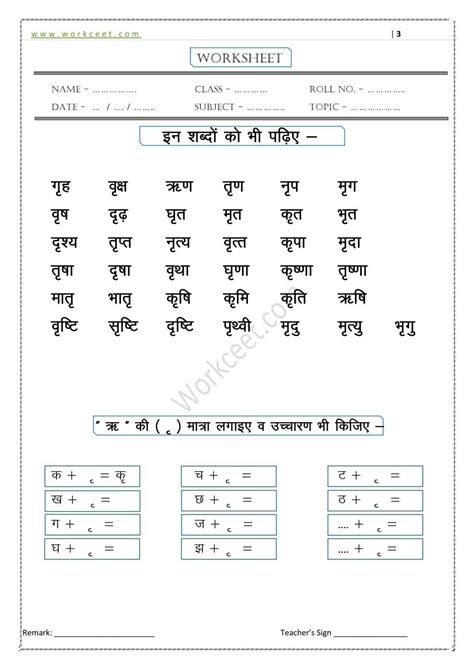 www.workceet.com | 3
WORKSHEET
NAME – ............... CLASS – ............ ROLL NO. – ...........
DATE – ... / .... / ........ SUBJECT – ............ TOPIC – ...............
इन शब्दों को भी पढ़िए –
गृह वृक्ष ऋण तृण नृप मृग
वृष दृढ़ घृत मृत कृत भृत
दृश्य तृप्त नृत्य वृत्त कृपा मृदा
तृषा दृषा वृथा घृणा कृष्णा तृष्णा
मातृ भातृ कृषि कृमि कृति ऋषि
वृष्टि सृष्टि दृष्टि पृथ्वी मृदु मृत्यु भृगु
Workceet.com
" ऋ " की ( ृ ) मात्रा लगाइए व उच्चारण भी किजिए –
क + ृ = कृ च + ृ = ट + ृ =
ख + ृ = छ + ृ = ठ + ृ =
ग + ृ = ज + ृ = .... + ृ =
घ + ृ = झ + ृ = .... + ृ =
Remark: ______________________ Teacher's Sign ________________